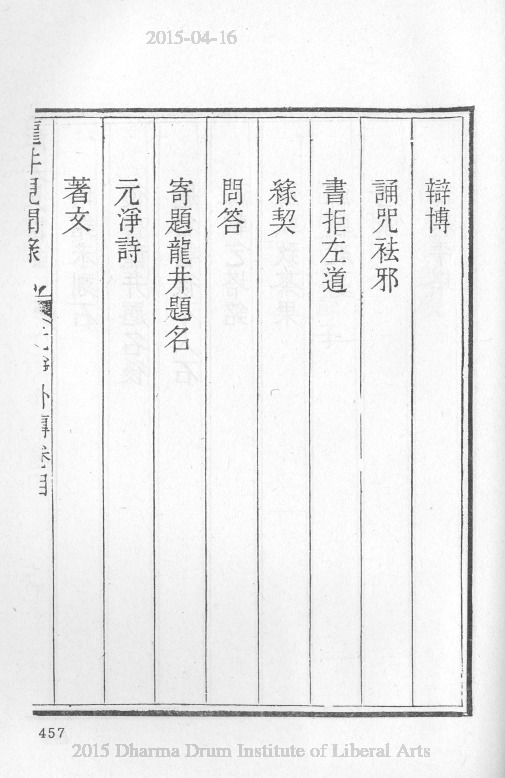 2015-04-16
辯博
誦咒祛邪
書拒左道
緣契
問答
寄題龍井題名
元淨詩
著文
龍井見聞錄
外傳卷目
457
2015 Dharma Drum Institute of Liberal Arts